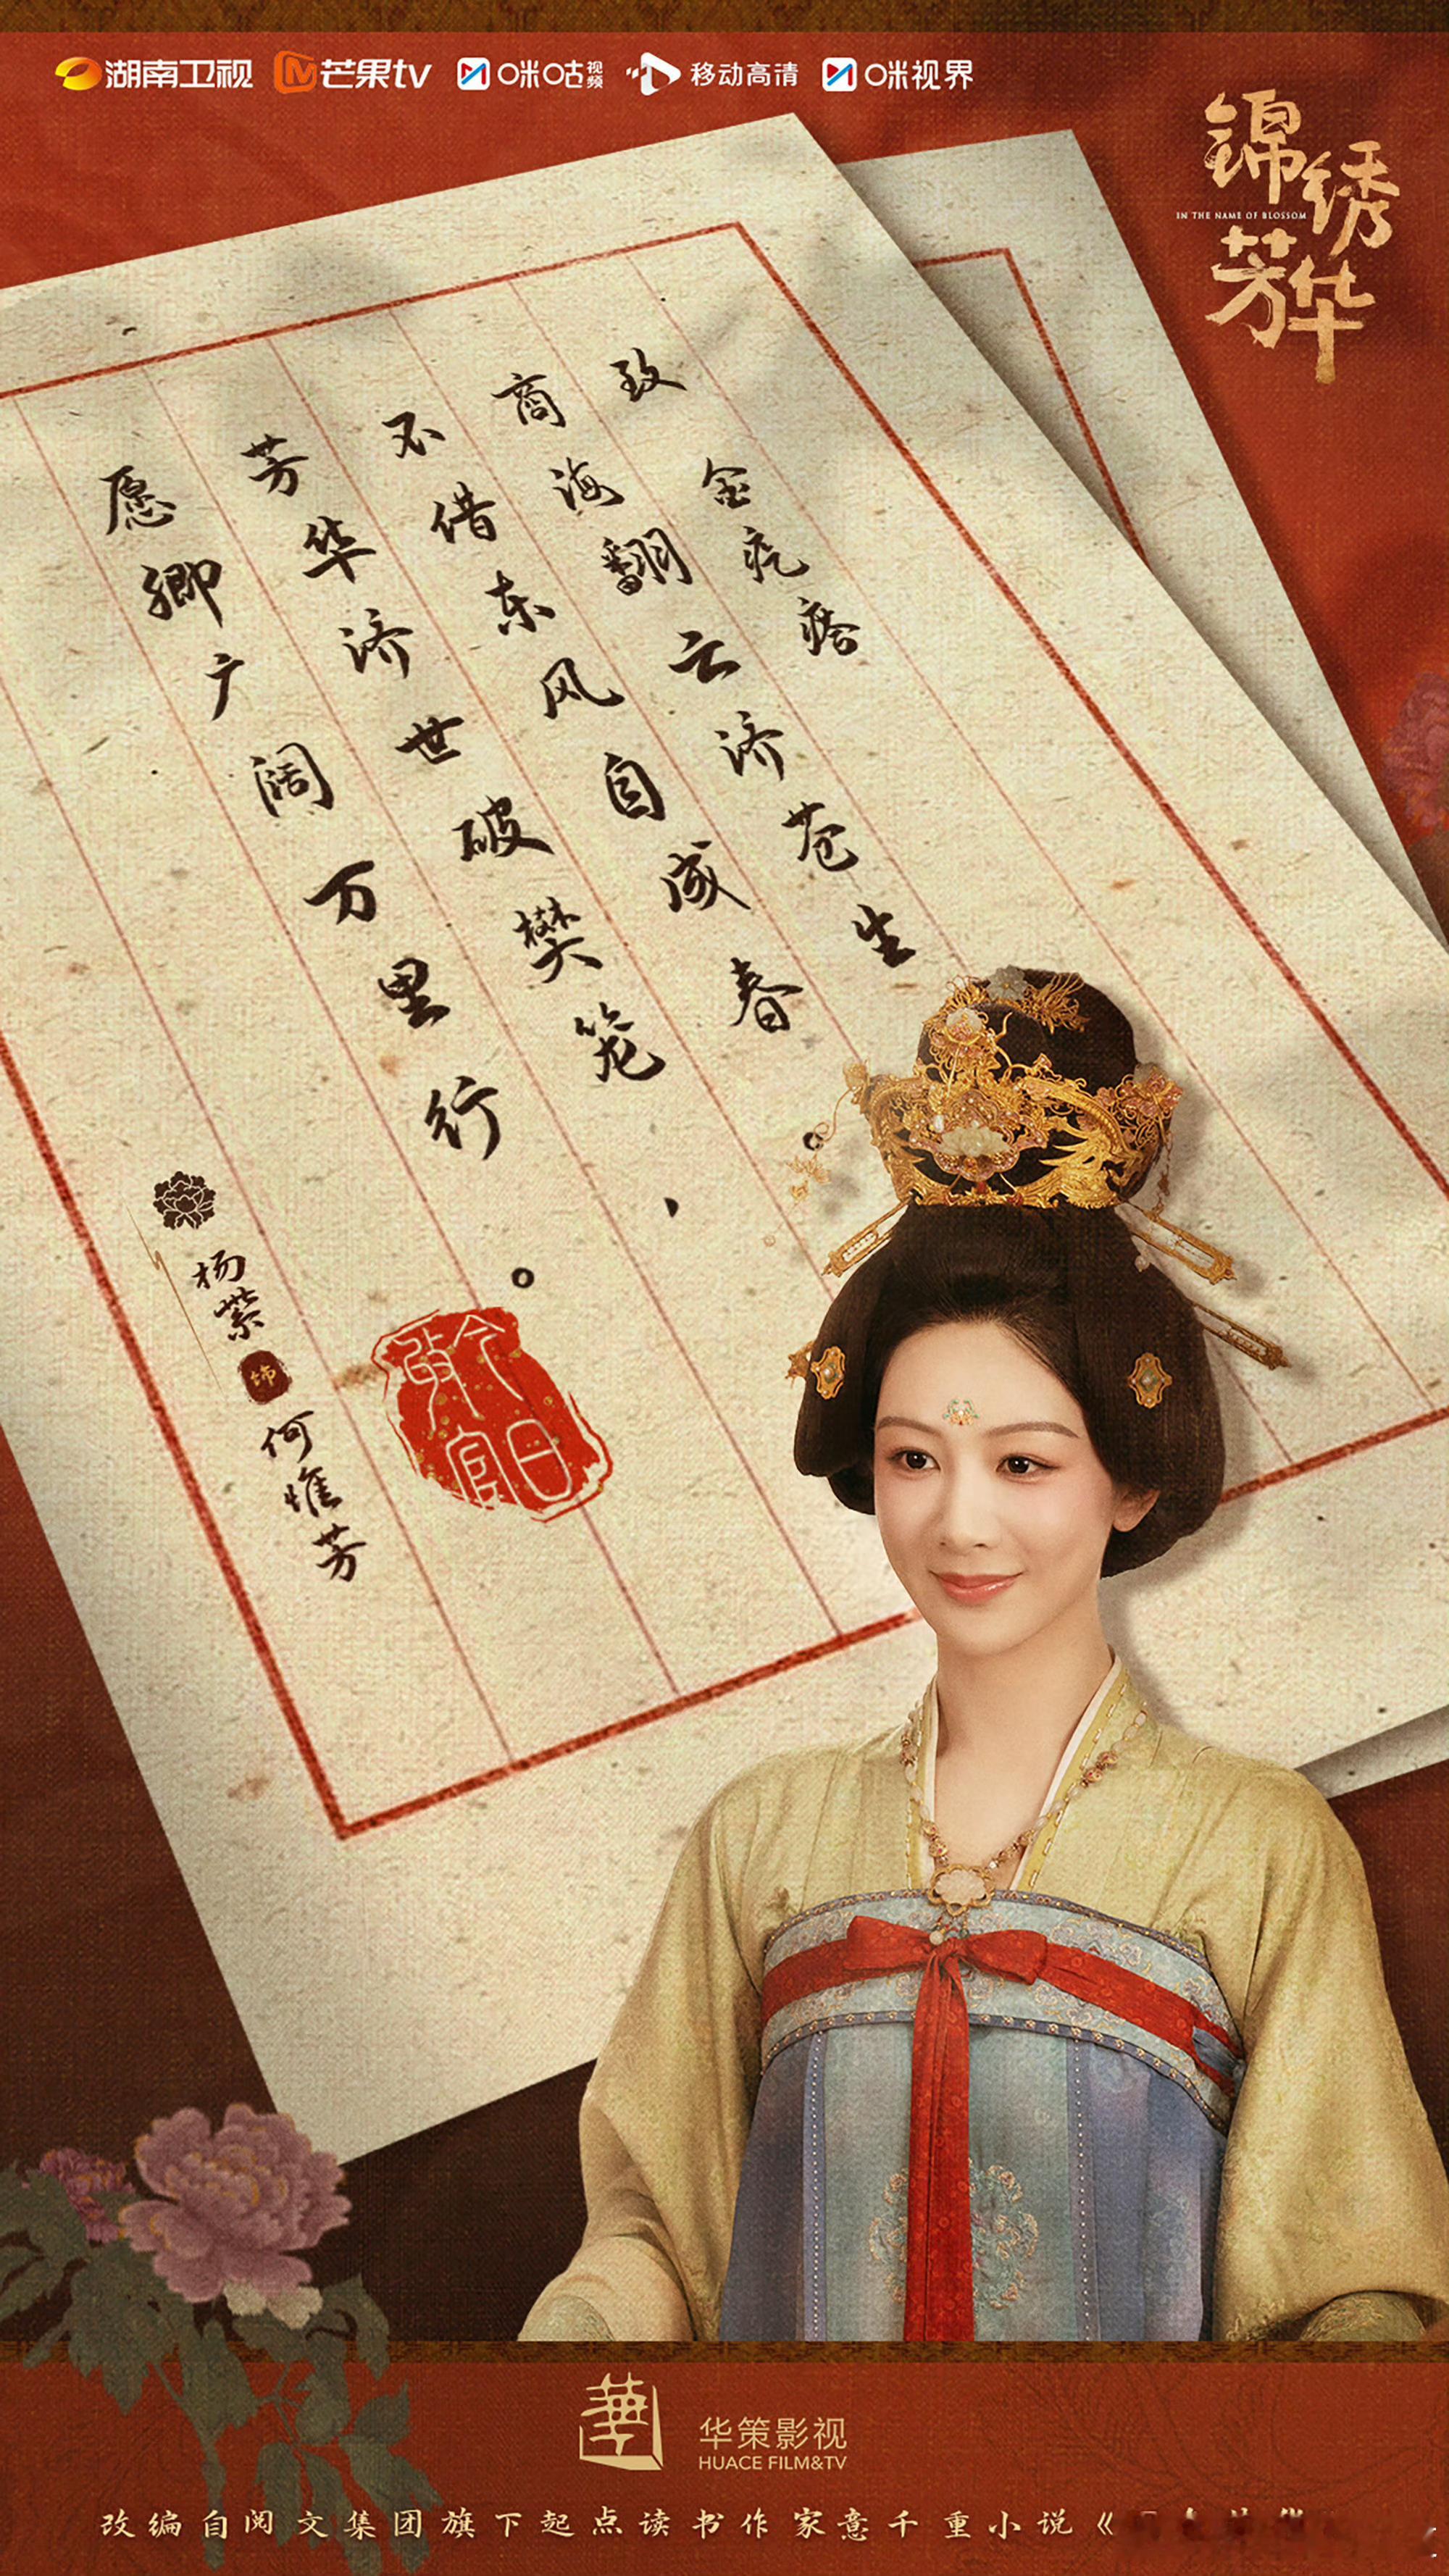 湖南卫视 芒果tv 咪咕视频 移动高清 咪视界
锦绣芳华
IN THE NAME OF BLOSSOM
致
金疙瘩
商海翻云济苍生
不借东风自成春。
芳华济世破樊笼、
愿卿广阔万里行。
杨紫 饰 何惟芳
華
华策影视
HUACE FILM&TV
改编自阅文集团旗下起点读书作家意千重小说《